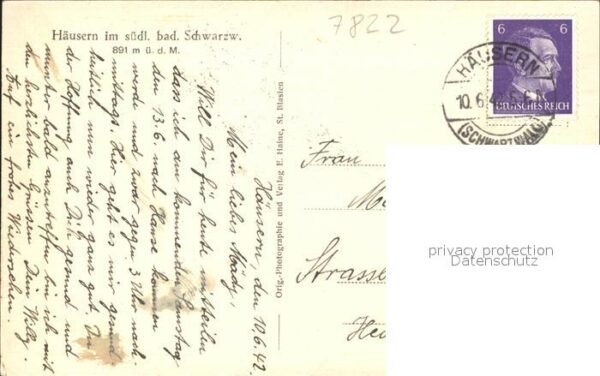 Häusern im südl. bad. Schwarzw.
891 m ü. d. M.
7822
6 6
DEUTSCHES REICH
HÄUSERN
10.6.42
(SCHWARZWALD)
Häusern, den 10.6.42
Mein liebes Mädy,
Will Dir für heute mitteilen
dass ich am kommenden Samstag
den 13.6. nach Hause kommen
werde und zwar gegen 3 Uhr nach-
mittags. Hier geht es mir gesund-
heitlich nun wieder ganz gut. In
der Hoffnung auch Dich gesund und
munter bald anzutreffen bin ich mit
den herzlichsten Grüssen Dein Willy.
Auf ein frohes Wiedersehen.
Orig.-Photographie und Verlag E. Haine, St. Blasien
Frau
Me
Strasse
He
privacy protection
Datenschutz